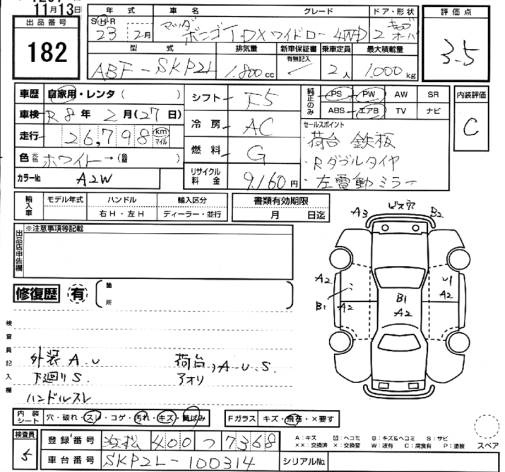 11月13日
出品番号
182
年式 車名 グレード ドア・形状
S・H・R
23年 2月 マツダ ボンゴT DXワイドロー 4WD 2
型式 排気量 新車保証書 乗車定員 最大積載量
有無記入
ABF-SKP2L 1,800cc 2人 1,000kg
評価点
3.5
車歴 自家用・レンタ( )
車検 R8年2月(27日)
走行 26,798 km マイル
色 ホワイト→( )
カラーNo A2W
シフト F5
冷房 AC
燃料 G
リサイクル料金 9,160円
純正のみ PS PW AW SR
ABS エアB TV ナビ
セールスポイント
荷台 鉄板
Rダブルタイヤ
左電動ミラー
内装評価
C
輸入車 モデル年式 ハンドル 輸入区分
年 右H・左H ディーラー・並行
書類有効期限
月 日迄
出品店申告欄
※注意事項等記載
修復歴 有 箇所
検査員記入欄
外装 A.U
下廻りS.
ハンドルスレ
荷台 アオリ A.U.S.
A3 ビス穴 B2
A2 B1 B1 A2 U1 A2
内装シート 穴・破れ・スレ・コゲ・汚れ・キズ・黄ばみ
Fガラス キズ・飛石・×要す
スペア
A:キズ U:ヘコミ B:キズ&ヘコミ S:サビ
××:交換済 ×:要交換 W:波有 C:腐食有 P:塗装
検査員
5
登録番号 浜松 400 つ 7368
車台番号 SKP2L-100314
シリアルNo.